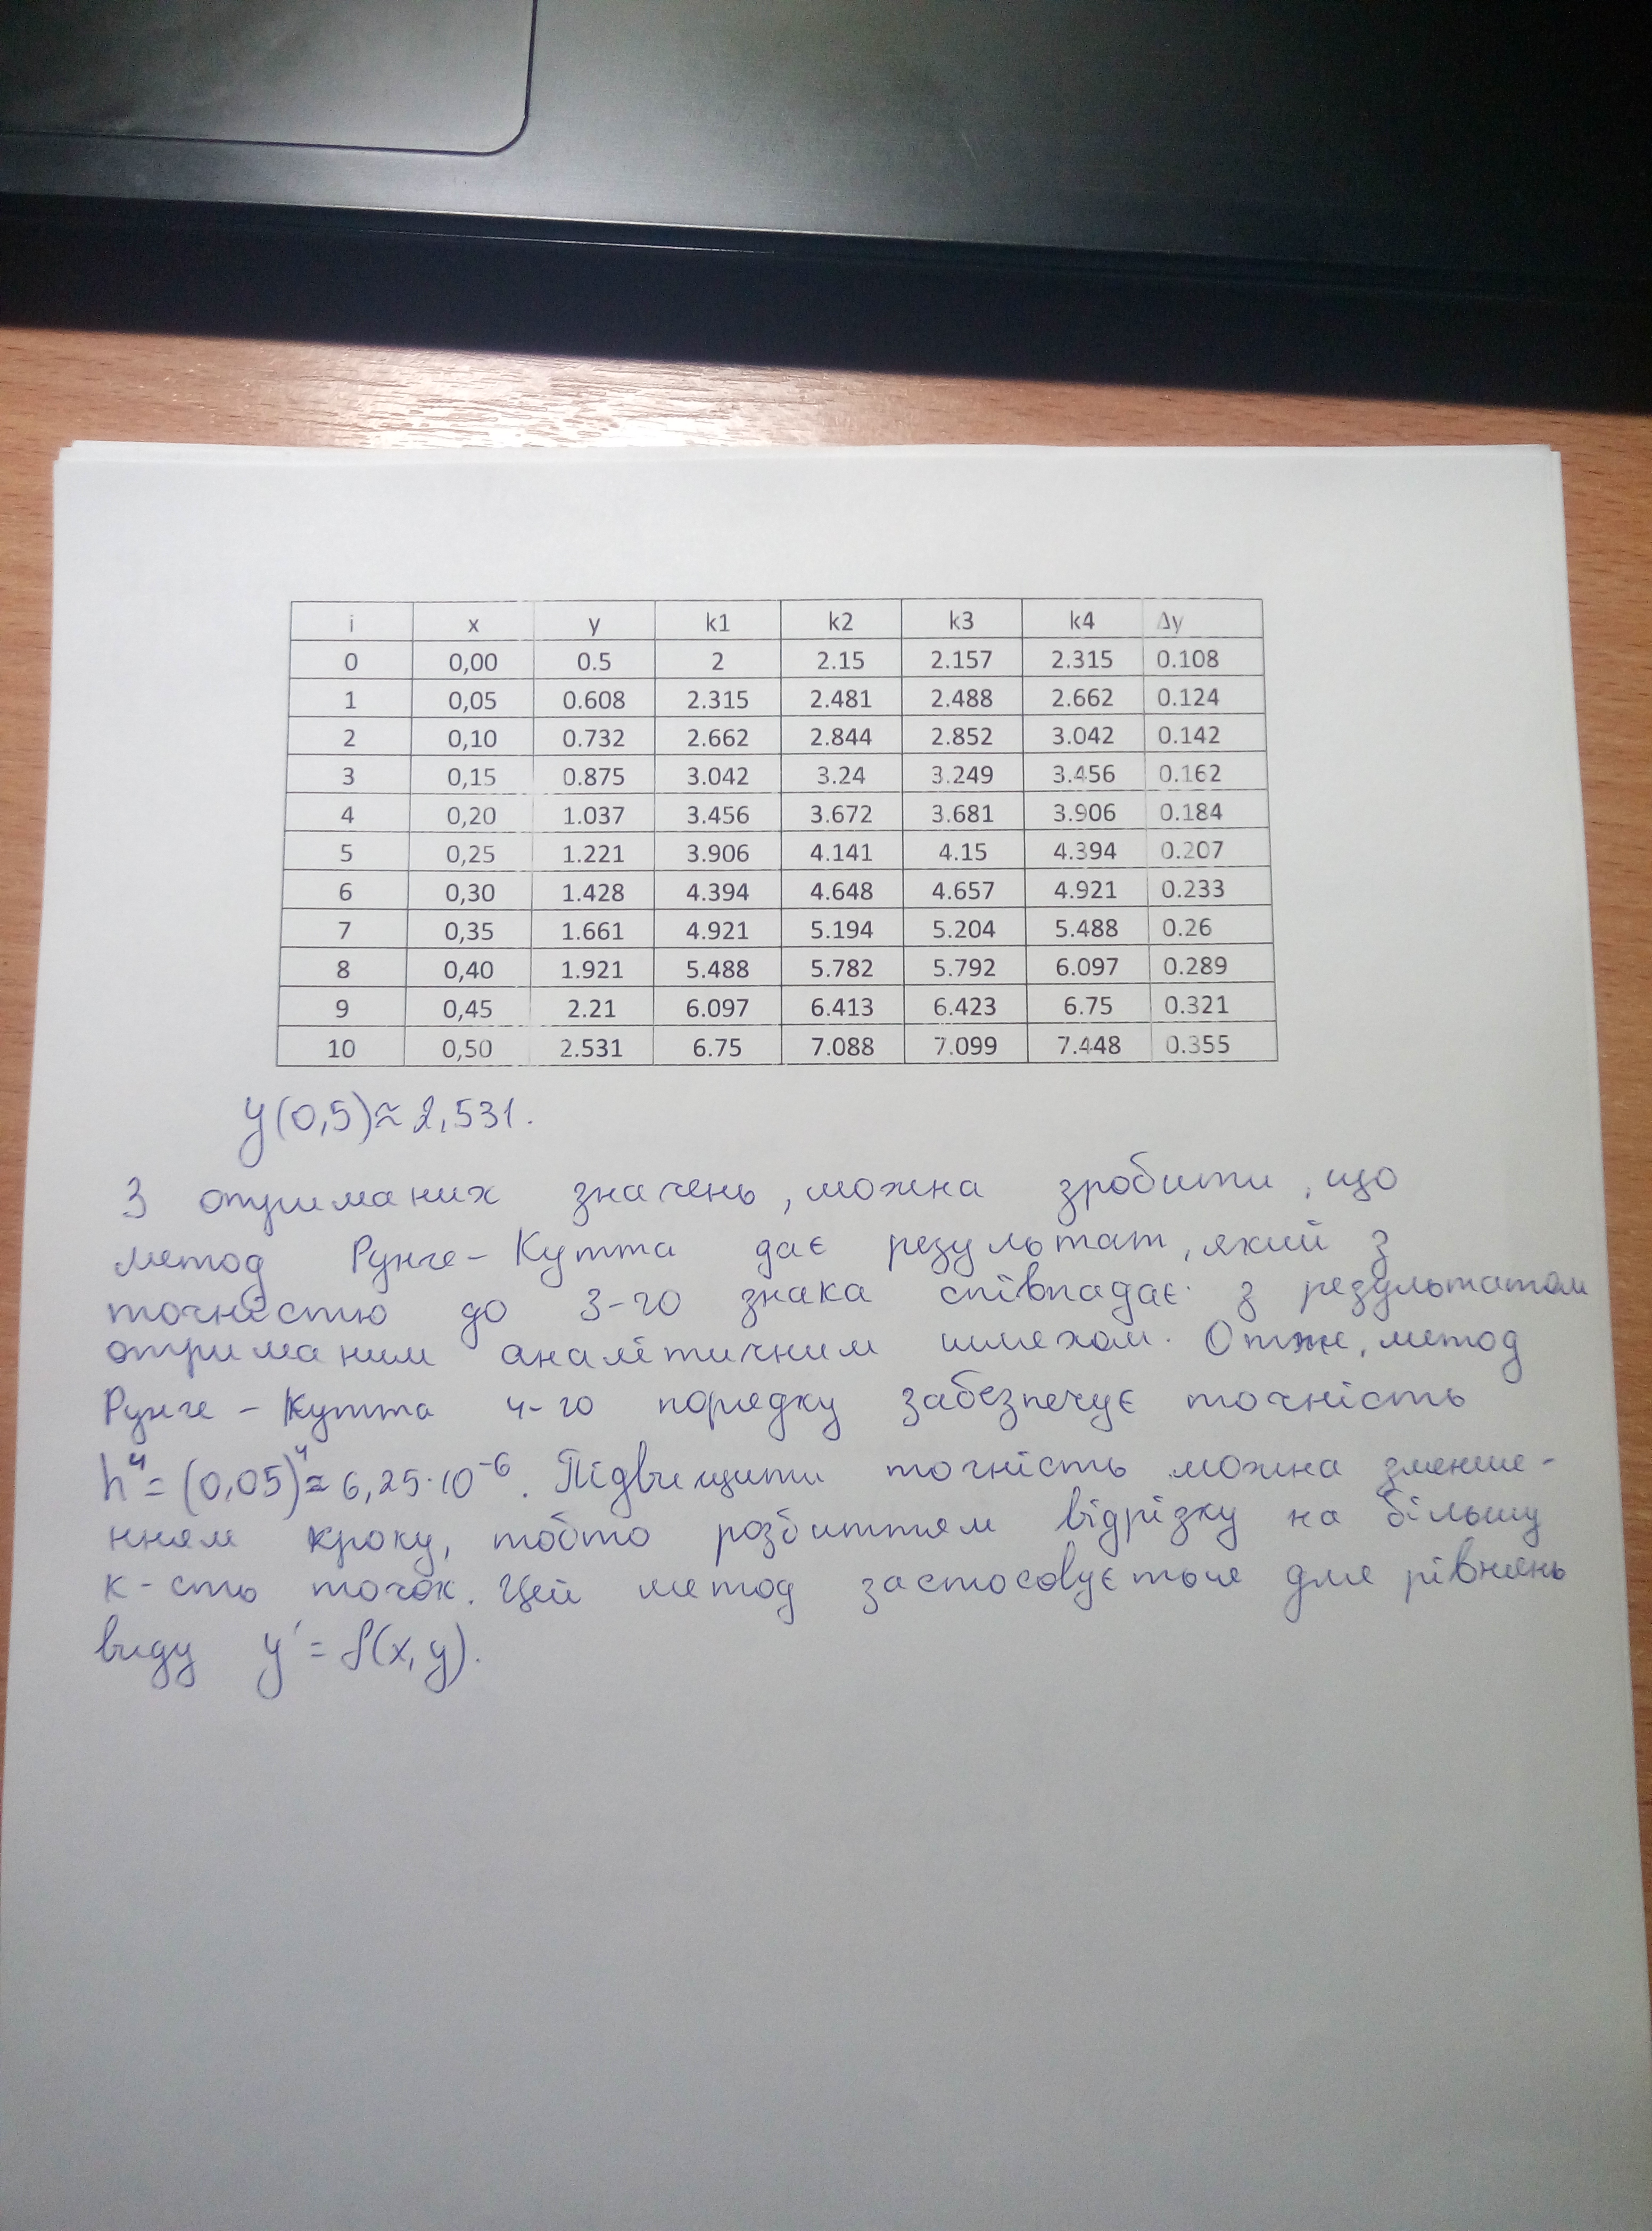 i x y k1 k2 k3 k4 Δy
0 0,00 0.5 2 2.15 2.157 2.315 0.108
1 0,05 0.608 2.315 2.481 2.488 2.662 0.124
2 0,10 0.732 2.662 2.844 2.852 3.042 0.142
3 0,15 0.875 3.042 3.24 3.249 3.456 0.162
4 0,20 1.037 3.456 3.672 3.681 3.906 0.184
5 0,25 1.221 3.906 4.141 4.15 4.394 0.207
6 0,30 1.428 4.394 4.648 4.657 4.921 0.233
7 0,35 1.661 4.921 5.194 5.204 5.488 0.26
8 0,40 1.921 5.488 5.782 5.792 6.097 0.289
9 0,45 2.21 6.097 6.413 6.423 6.75 0.321
10 0,50 2.531 6.75 7.088 7.099 7.448 0.355
y(0,5)≈2,531.
З отриманих значень, можна зробити, що
метод Рунге-Кутта дає результат, який з
точністю до 3-го знака співпадає з результатом
отриманим аналітичним шляхом. Отже, метод
Рунге-Кутта 4-го порядку забезпечує точність
h⁴=(0,05)⁴≈6,25·10⁻⁶. Підвищити точність можна зменше-
нням кроку, тобто розбиттям відрізку на більшу
к-сть точок. Цей метод застосовується для рівнянь
виду y'=f(x,y).